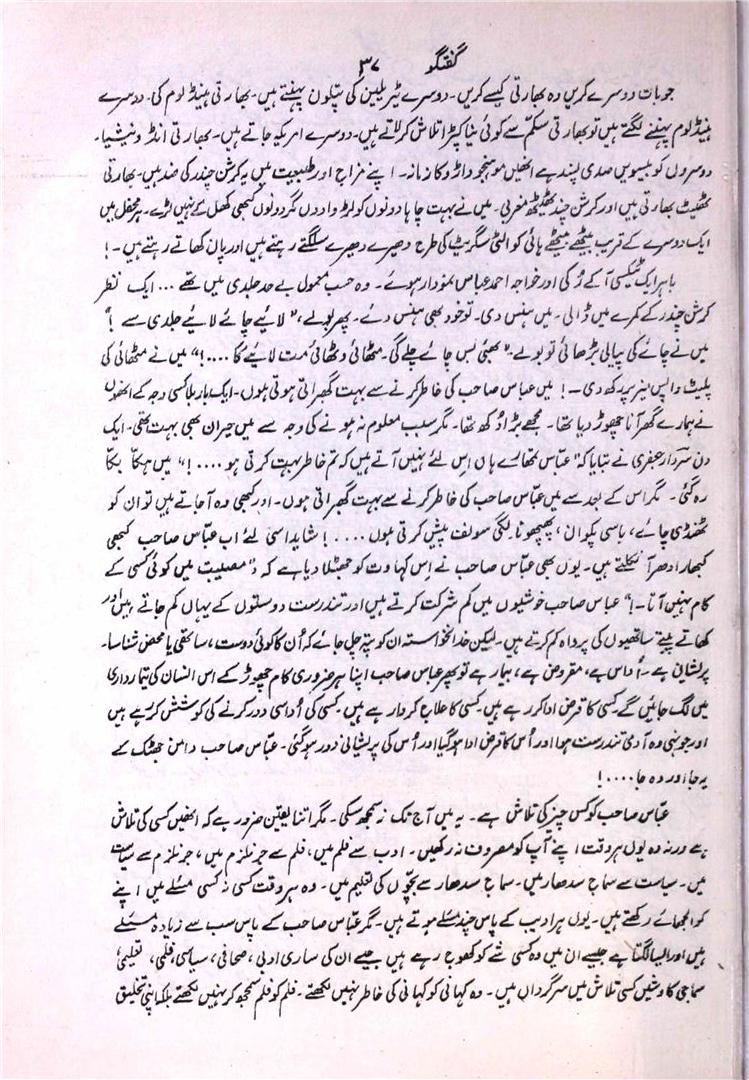 گفتگو ۳۷
جو بات دوسرے کریں وہ بھارتی کیسے کریں۔ دوسرے ٹیریلین کی پتلون پہنتے ہیں۔ بھارتی ہینڈ لوم کی۔ دوسرے
ہینڈ لوم پہننے لگتے ہیں تو بھارتی سکم سے کوئی نیا کپڑا تلاش کر لاتے ہیں۔ دوسرے امریکہ جاتے ہیں۔ بھارتی انڈونیشیا۔
دوسروں کو بیسویں صدی پسند ہے انھیں موہنجو داڑو کا زمانہ۔ اپنے مزاج اور طبیعیت میں یہ کرشن چندر کی ضد ہیں۔ بھارتی
ٹھٹیٹ بھارتی ہیں اور کرشن چندر ٹھیٹھ مغربی۔ میں نے بہت چاہا دونوں کو لڑوا دوں مگر دونوں کبھی کھل کے نہیں لڑے۔ ہر محفل میں
ایک دوسرے کے قریب بیٹھے بیٹھے ہائی کوالٹی سگریٹ کی طرح دھیرے دھیرے سلگتے رہتے ہیں اور پان کھاتے رہتے ہیں۔!
باہر ایک ٹیکسی آ کے رُکی اور خواجہ احمد عباس نمودار ہوئے۔ وہ حسب معمول بے حد جلدی میں تھے ... ایک نظر
کرشن چندر کے کمرے میں ڈالی۔ میں ہنس دی۔ تو خود بھی ہنس دئے۔ پھر بولے، "لائیے چائے لائیے جلدی سے !"
میں نے چائے کی پیالی بڑھائی تو بولے۔ "بھئی بس چائے چلے گی۔ مٹھائی وٹھائی مت لائیے گا ....!" میں نے مٹھائی کی
پلیٹ واپس میز پر رکھ دی۔! میں عباس صاحب کی خاطر کرنے سے بہت گھبراتی ہوتی ہوں۔ ایک بار بلا کسی وجہ کے انھوں
نے ہمارے گھر آنا چھوڑ دیا تھا۔ مجھے بڑا دُکھ تھا۔ مگر سبب معلوم نہ ہونے کی وجہ سے میں حیران بھی بہت تھی۔ ایک
دن سردار جعفری نے بتایا کہ "عباس تمہارے ہاں اس لئے نہیں آتے ہیں کہ تم خاطر بہت کرتی ہو ....!" میں ہکّا بکّا
رہ گئی۔ مگر اس کے بعد سے میں عباس صاحب کی خاطر کرنے سے بہت گھبراتی ہوں۔ اور کبھی وہ آ جاتے ہیں تو ان کو
ٹھنڈی چائے، باسی پکوان، پھپھوند لگی سولف پیش کرتی ہوں ....! شاید اسی لئے اب عباس صاحب کبھی
کبھار ادھر آ نکلتے ہیں۔ یوں بھی عباس صاحب نے اس کہاوت کو جھٹلا دیا ہے کہ "مصیبت میں کوئی کسی کے
کام نہیں آتا۔!" عباس صاحب خوشیوں میں کم شرکت کرتے ہیں اور تندرست دوستوں کے یہاں کم جاتے ہیں اور
کھاتے پیتے ساتھیوں کی پرواہ کم کرتے ہیں۔ لیکن خدانخواستہ ان کو پتہ چل جائے کہ اُن کا کوئی دوست، ساتھی یا محض شناسا۔
پریشان ہے۔ اُداس ہے، مقروض ہے، بیمار ہے تو پھر عباس صاحب اپنا ہر ضروری کام چھوڑ کے اس انسان کی تیمارداری
میں لگ جائیں گے۔ کسی کا قرض ادا کر رہے ہیں۔ کسی کا علاج کروا رہے ہیں۔ کسی کی اُداسی دور کرنے کی کوشش کر رہے ہیں
اور جونہی وہ آدمی تندرست ہوا اور اُس کا قرض ادا ہو گیا اور اُس کی پریشانی دور ہو گئی۔ عباس صاحب دامن جھٹک کے
یہ جا اور وہ جا ....!
عباس صاحب کو کس چیز کی تلاش ہے۔ یہ میں آج تک نہ سمجھ سکی۔ مگر اتنا یقین ضرور ہے کہ انھیں کسی کی تلاش
ہے ورنہ وہ یوں ہر وقت اپنے آپ کو مصروف نہ رکھیں۔ ادب سے فلم میں، فلم سے جرنلزم میں، جرنلزم سے سیاست
میں۔ سیاست سے سماج سدھار میں۔ سماج سدھار سے بچّوں کی تعلیم میں۔ وہ ہر وقت کسی نہ کسی مسئلے میں اپنے
کو الجھائے رکھتے ہیں۔ یوں ہر ادیب کے پاس چند مسئلے ہوتے ہیں۔ مگر عباس صاحب کے پاس سب سے زیادہ مسئلے
ہیں اور ایسا لگتا ہے جیسے ان میں وہ کسی شے کو کھوج رہے ہیں جیسے ان کی ساری ادبی، صحافی، سیاسی، فلمی، تعلیمی،
سماجی کاوشیں کسی تلاش میں سرگرداں ہیں۔ وہ کہانی کو کہانی کی خاطر نہیں لکھتے۔ فلم کو فلم سمجھ کر نہیں لکھتے بلکہ اپنی تخلیق